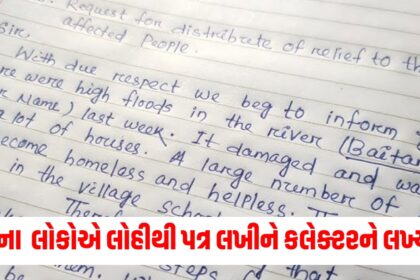 Request for distribute of relief to th
affected People.
Sir,
With due respect we beg to inform
re were high floods in the river (Baita
r Name) last week. It damaged and wa
a lot of houses. A large number of
ecome homeless and helpless. T
in the village schoo
ના લોકોએ લોહીથી પત્ર લખીને કલેક્ટરને લખ્ય
steps